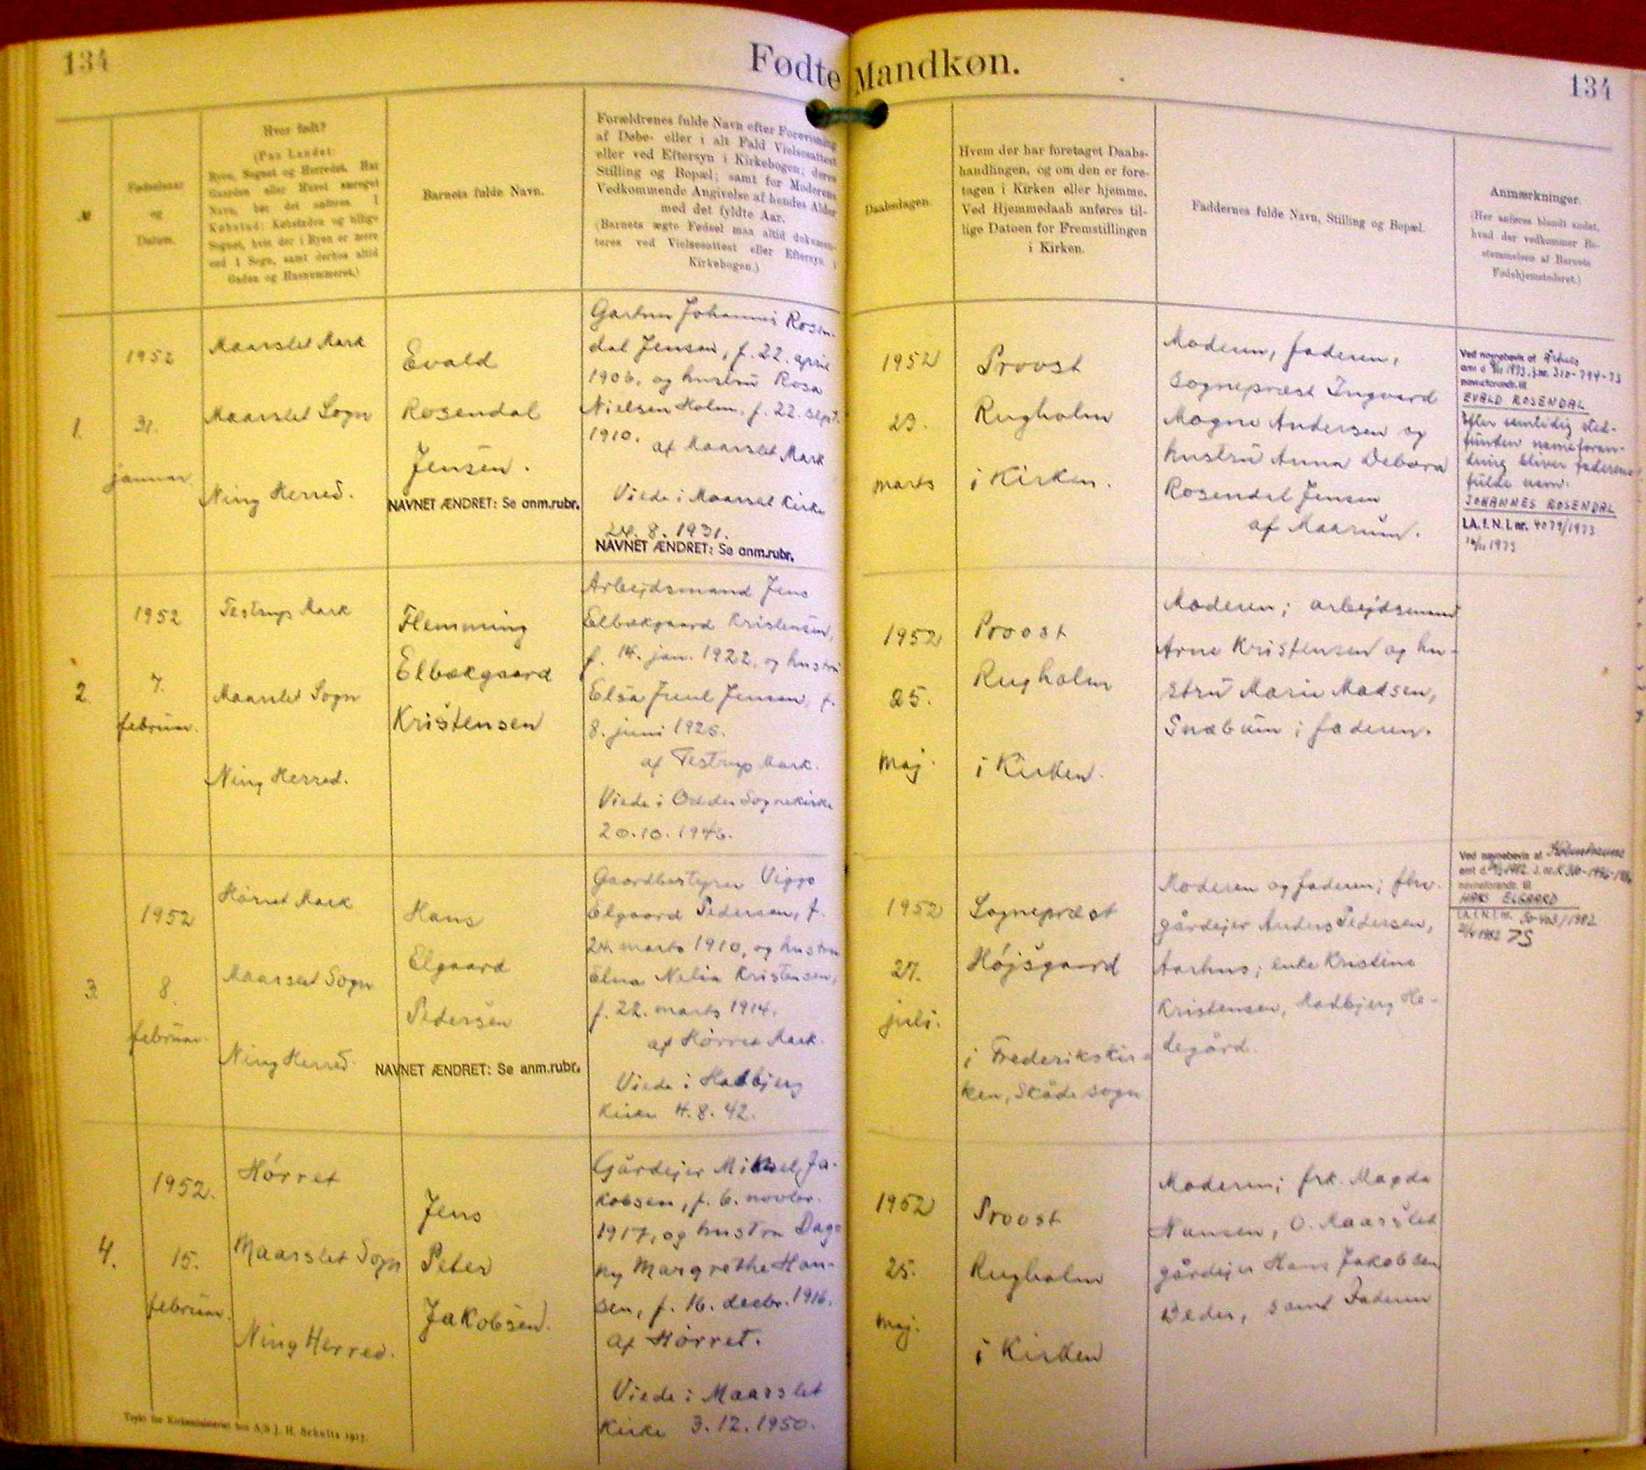 134
Fødte Mandkøn.
134
№
Fødselsaar
og
Datum.
Hvor født?
(Paa Landet:
Byen, Sognet og Herredet. Har
Gaarden eller Huset særeget
Navn, bør det anføres. I
Købstad: Købstadens og tillige
Sognet, hvis der i Byen er mere
end 1 Sogn, samt derhos altid
Gaden og Husnummeret.)
Barnets fulde Navn.
Forældrenes fulde Navn efter Forevisning
af Døbe- eller i alt Fald Vielsesattest
eller ved Eftersyn i Kirkebogen; deres
Stilling og Bopæl; samt for Moderens
Vedkommende Angivelse af hendes Alder
med det fyldte Aar.
(Barnets ægte Fødsel maa altid dokumen-
teres ved Vielsesattest eller Eftersyn i
Kirkebogen.)
Daabsdagen.
Hvem der har foretaget Daabs-
handlingen, og om den er fore-
tagen i Kirken eller hjemme.
Ved Hjemmedaab anføres til-
lige Datoen for Fremstillingen
i Kirken.
Faddernes fulde Navn, Stilling og Bopæl.
Anmærkninger.
(Her anføres blandt andet,
hvad der vedkommer Be-
stemmelsen af Barnets
Fødehjemstedsret.)
1.
1952
31.
januar
Maarslet Mark
Maarslet Sogn
Ning Herred.
Evald
Rosendal
Jensen.
NAVNET ÆNDRET: Se anm.rubr.
Gartner Johannes Rosen-
dal Jensen, f. 22. april
1906, og hustru Rosa
Nielsen Holm, f. 22. sept.
1910. af Maarslet Mark
Viede i Maarslet Kirke
24.8.1931.
NAVNET ÆNDRET: Se anm.rubr.
1952
23.
marts
Provst
Rugholm
i Kirken.
Moderen, faderen,
sognepræst Ingvard
Mogens Andersen og
hustru Anna Debora
Rosendal Jensen
af Maarum.
Ved navnebevis af Århus
amt d. 1973, j.nr. 310-794-73
navneforandr. til
EVALD ROSENDAL
Efter samtidig sted-
funden navneforan-
dring bliver faderens
fulde navn:
JOHANNES ROSENDAL
I.A.f.N.l.nr. 4079/1973
1973
2.
1952
7.
februar.
Testrup Mark
Maarslet Sogn
Ning Herred.
Flemming
Elbækgaard
Kristensen
Arbejdsmand Jens
Elbækgaard Kristensen,
f. 14. jan. 1922, og hustru
Elsa Juul Jensen, f.
8. juni 1925.
af Testrup Mark.
Viede i Odder Sognekirke
20.10.1946.
1952
25.
Maj.
Provst
Rugholm
i Kirken.
Moderen; arbejdsmand
Arne Kristensen og hu-
stru Marie Madsen,
Snæbum; faderen.
3.
1952
8.
februar.
Hørret Mark
Maarslet Sogn
Ning Herred
Hans
Elgaard
Pedersen
NAVNET ÆNDRET: Se anm.rubr.
Gaardbestyrer Viggo
Elgaard Pedersen, f.
24. marts 1910, og hustru
Elna Nelia Kristensen,
f. 22. marts 1914.
af Hørret Mark.
Viede i Hadbjerg
Kirke 4.8.42.
1952
27.
juli.
Sognepræst
Højsgaard
i Frederikskir-
ken, Skåde sogn
Moderen og faderen; fhv.
gårdejer Anders Pedersen,
Aarhus; enke Kristine
Kristensen, Hadbjerg He-
degård.
Ved navnebevis af
navneforandr. til
HANS ELGAARD
I.A.f.N.l.nr. 50-403/1982
1982
4.
1952.
15.
februar.
Hørret
Maarslet Sogn
Ning Herred.
Jens
Peter
Jakobsen.
Gårdejer Mikael Ja-
kobsen, f. 6. novbr.
1917, og hustru Dag-
ny Margrethe Han-
sen, f. 16. decbr. 1916,
af Hørret.
Viede i Maarslet
Kirke 3.12.1950.
1952
25.
Maj.
Provst
Rugholm
i Kirken
Moderen; frk. Magda
Hansen, O. Maarslet
gårdejer Hans Jakobsen
Beder, samt Faderen
Trykt for Kirkeministeriet hos A/S J. H. Schultz 1917.